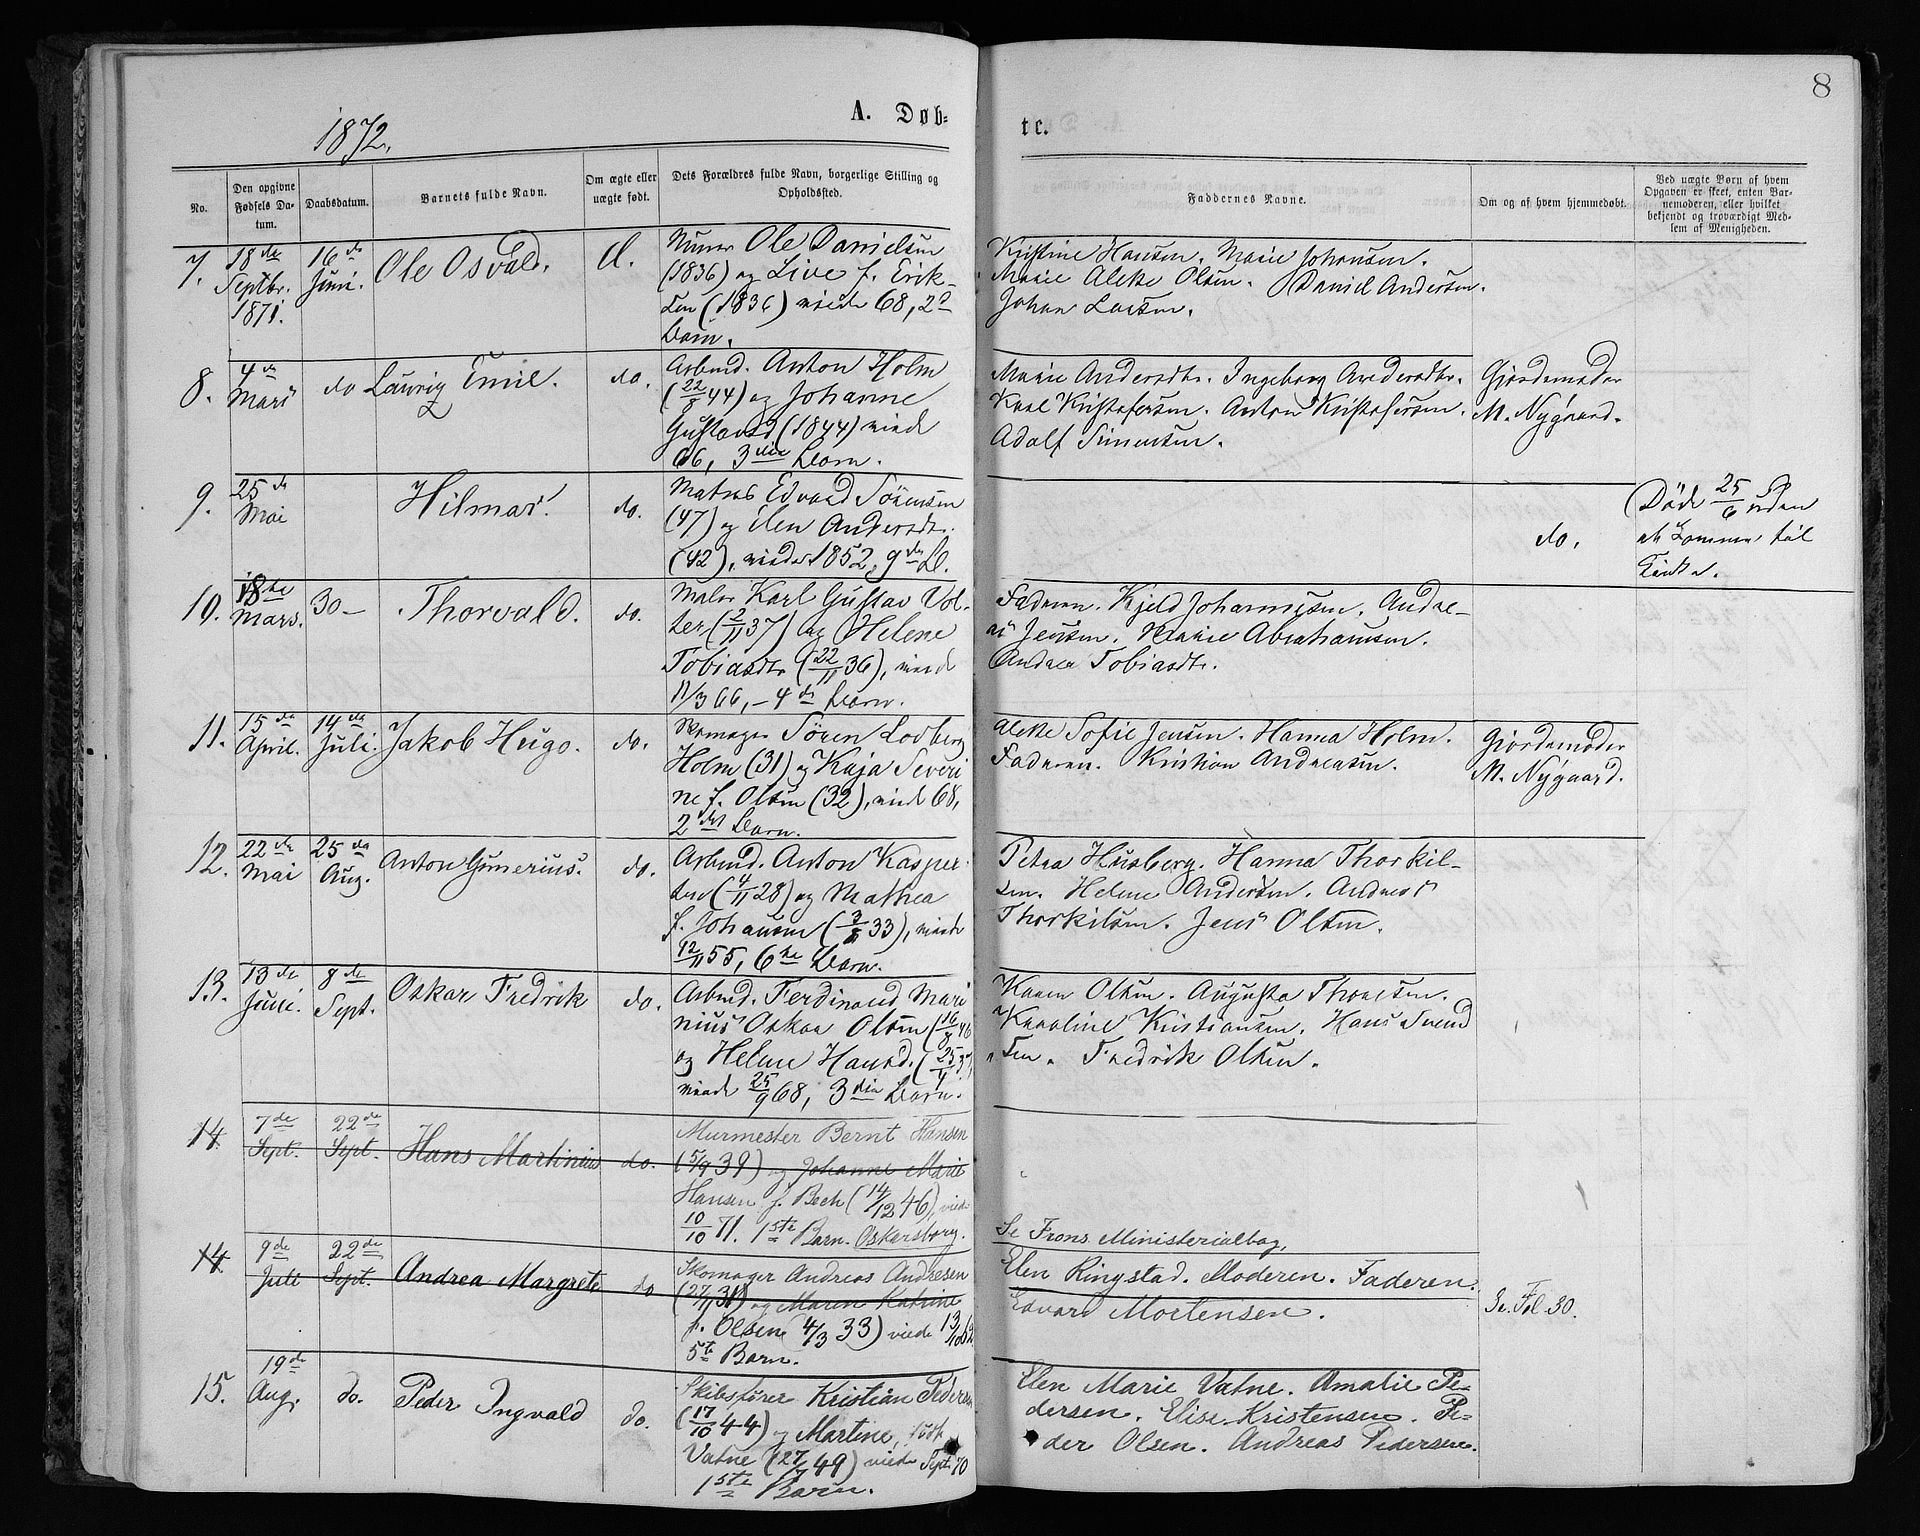 8
1872.
A. Døb-
te.
No.
Den opgivne Fødsels Datum.
Daabsdatum.
Barnets fulde Navn.
Om ægte eller uægte født.
Dets Forældres fulde Navn, borgerlige Stilling og Opholdssted.
Faddernes Navne.
Om og af hvem hjemmedøbt.
Ved uægte Børn af hvem Opgaven er skeet, enten Barnemoderen, eller hvilket bekjendt og troværdigt Medlem af Menigheden.
7.
18de Septbr. 1871.
16de Juni.
Ole Osvald.
d.
Murer Ole Danielsen
(1836) og Live f. Erik-
sen (1836) viede 68, 2
Barn.
Kristine Hansen. Marie Johansen.
Marie Olsen. Daniel Andersen.
Johan Larsen.
8.
4de
do
Lauritz Emil.
do.
Arbmd. Anton Holm
(22/8 44) og Johanne
Gustavsd. (1844) viede
66, 3die Barn.
Marie Andersdtr. Ingeborg Andersdtr.
Karl Kristofersen. Anton Kristofersen.
Adolf Simensen.
Gjordemoder
M. Nygaard.
9.
25de Mai
Hilmar.
do.
Matros Edvard Sørensen
(47) og Elen Andersdtr.
(42), viede 1852, 9de B.
do.
Døde 25/6 uden
at komme til
Kirke.
10.
18de Mars.
30 –
Thorvald.
do.
Maler Karl Gustav Vol-
ter (2/11 37) og Helene
Tobiasdtr (22/11 36), viede
11/3 66, – 4de Barn.
Faderen. Kjeld Johannesen. Andre-
as Jensen. Marie Abrahamsen.
Andrea Tobiasdtr.
11.
15de April.
14de Juli.
Jakob Hugo.
do.
Skomager Søren Lodberg
Holm (31) og Kaja Severi
ne f. Olsen (32), viede 68,
2det Barn.
Sofie Jensen. Hanna Holm.
Faderen. Kristian Andreasen.
Gjordemoder
M. Nygaard.
12.
22de Mai
25de Aug.
Anton Gunerius.
do.
Arbmd. Anton Kasper-
sen (4/11 28) og Mathea
f. Johansen (3/8 33), viede
12/11 55, 6te Barn.
Petra Husberg. Hanna Thorkil-
sen. Helene Andersen. Andreas
Thorkilsen. Jens Olsen.
13.
13de Juli.
8de Sept.
Oskar Fredrik
do.
Arbmd. Ferdinand Mari
nius Oskar Olsen (16/8 46
og Helene Hansd. (25/4 37,
viede 25/9 68, 3die Barn.
Karen Olsen. Augusta Thoresen.
Karoline Kristiansen. Hans Svend
sen. Fredrik Olsen.
14.
7de Sept.
22de Sept.
Hans Martinius
do.
Murmester Bernt Hansen
(5/9 39) og Johanne Marie
Hansen f. Bech (14/12 46), viede
10/10 71. 1ste Barn. Oskarsborg.
Se Frons Ministerialbog.
14.
9de Juli
22de Sept.
Andrea Margrete
do
Skomager Andreas Andresen
(27/ 31) og Maren Katrine
f. Olsen 4/3 33) viede 13/10
5te Barn.
Elen Ringstad. Moderen. Faderen.
Edvard Mortensen.
Se Fol 30.
15.
19de Aug.
do.
Peder Ingvald
do.
Skibsfører Kristian Pedersen
(17/10 44) og Martine, født
Vatne (27/ 49) viede Sept 70
1ste Barn.
Elen Marie Vatne. Amalie Pe-
dersen. Elise Kristensen. Pe-
der Olsen. Andreas Pedersen.